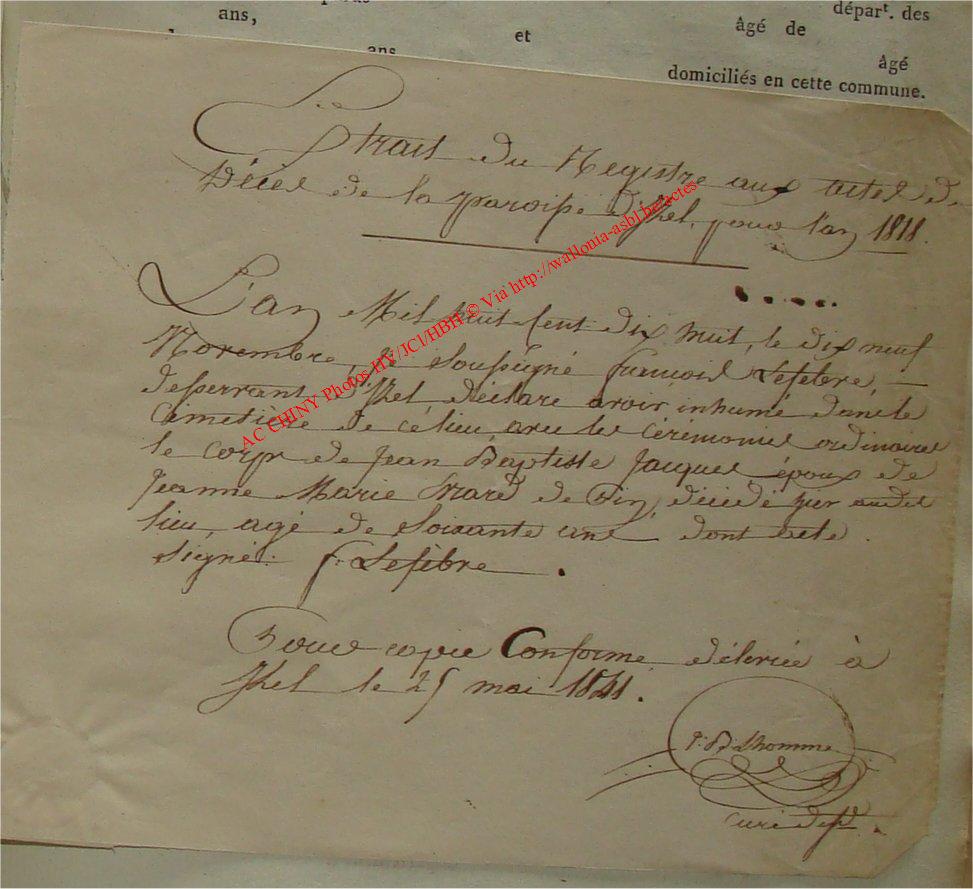 ans,
départ. des
et
âgé de
ans
âgé
domiciliés en cette commune.
Extrait du Registre aux actes de
Décès de la paroisse d'Izel, pour l'an 1818.
L'an Mil huit Cent dix huit, le dix neuf
Novembre, Je Soussigné françois Lefebre
desservant d'Izel déclare avoir inhumé dans le
Cimetière de ce lieu, avec les Cérémonies ordinaires
le corps de Jean Baptiste Jacques, époux de
Jeanne Marie de Pin, décédé hier audit
lieu, agé de Soixante ans dont acte
Signé: f. Lefèbre.
Pour copie Conforme délivrée à
Izel le 25 mai 1841.
Lhomme
curé
AC CHINY Photos HY/JCl/HBH © Via http://wallonia-asbl.be/actes